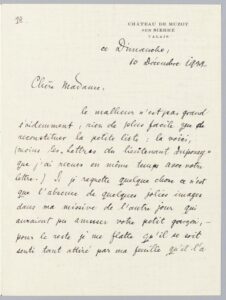 CHÂTEAU DE MUZOT
SUR SIERRE
VALAIS
ce Dimanche,
10 Décembre
Chère Madame,
le malheur n'est pas grand
évidemment ; rien de plus facile que de
reconstituer la petite liste ; la voici,
(moins les Lettres du lieutenant Dupouey
que j'ai reçues en même temps avec votre
lettre.) Si je regrette quelque chose ce n'est
que l'absence de quelques jolies images
dans ma missive de l'autre jour qui
auraient pu amuser votre petit garçon, –
pour le reste je me flatte qu'il se soit
senti tant attiré par ma feuille qu'il l'a